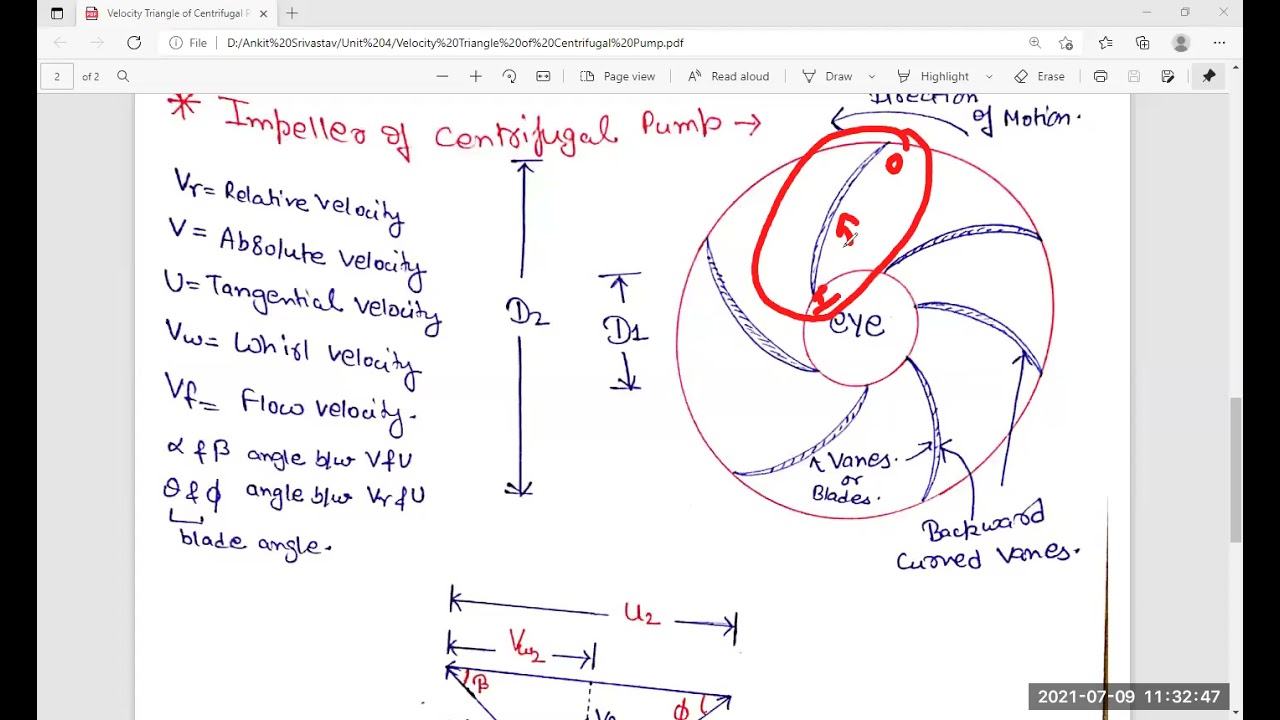 Velocity Triangle of Centrifugal P
File
D:/Ankit%20Srivastav/Unit%204/Velocity%20Triangle%20of%20Centrifugal%20Pump.pdf
2 of 2
Page view
Read aloud
Draw
Highlight
Erase
* Impeller of Centrifugal Pump →
Direction
of Motion.
Vr = Relative velocity
V = Absolute velocity
U = Tangential velocity
Vw = Whirl velocity
Vf = Flow velocity.
α & β angle b/w V & U
θ & ϕ angle b/w Vr & U
blade angle.
D2
D1
O
I
eye
Vanes.
or
Blades.
Backward
Curved Vanes.
U2
Vw2
β
ϕ
2021-07-09 11:32:47